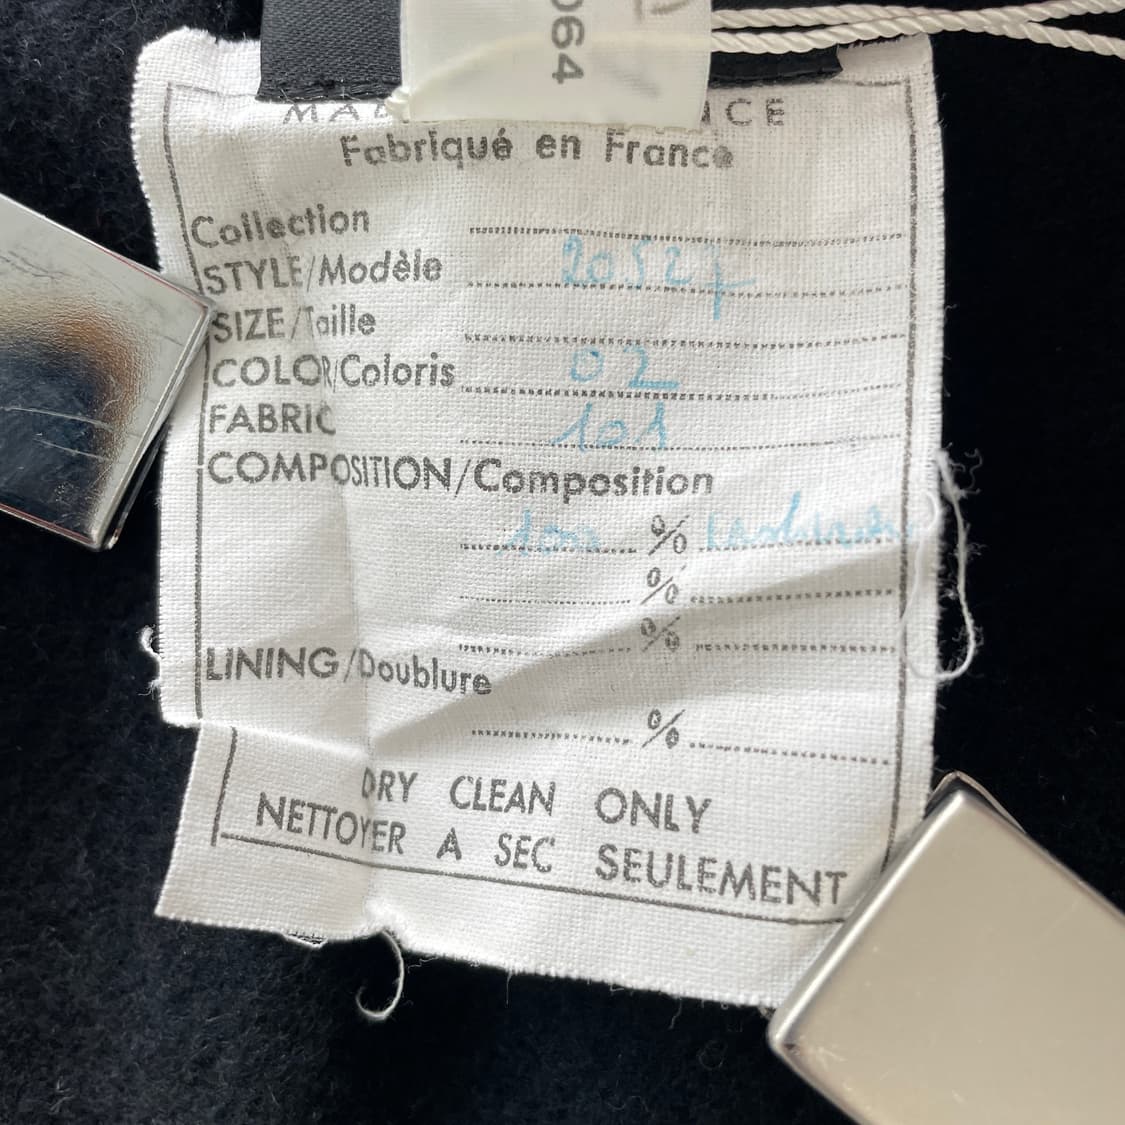 064
Fabriqué en France
Collection
STYLE/Modèle 20.527
SIZE/Taille
COLOR/Coloris 02
FABRIC 101
COMPOSITION/Composition
%
%
%
LINING/Doublure
%
DRY CLEAN ONLY
NETTOYER A SEC SEULEMENT